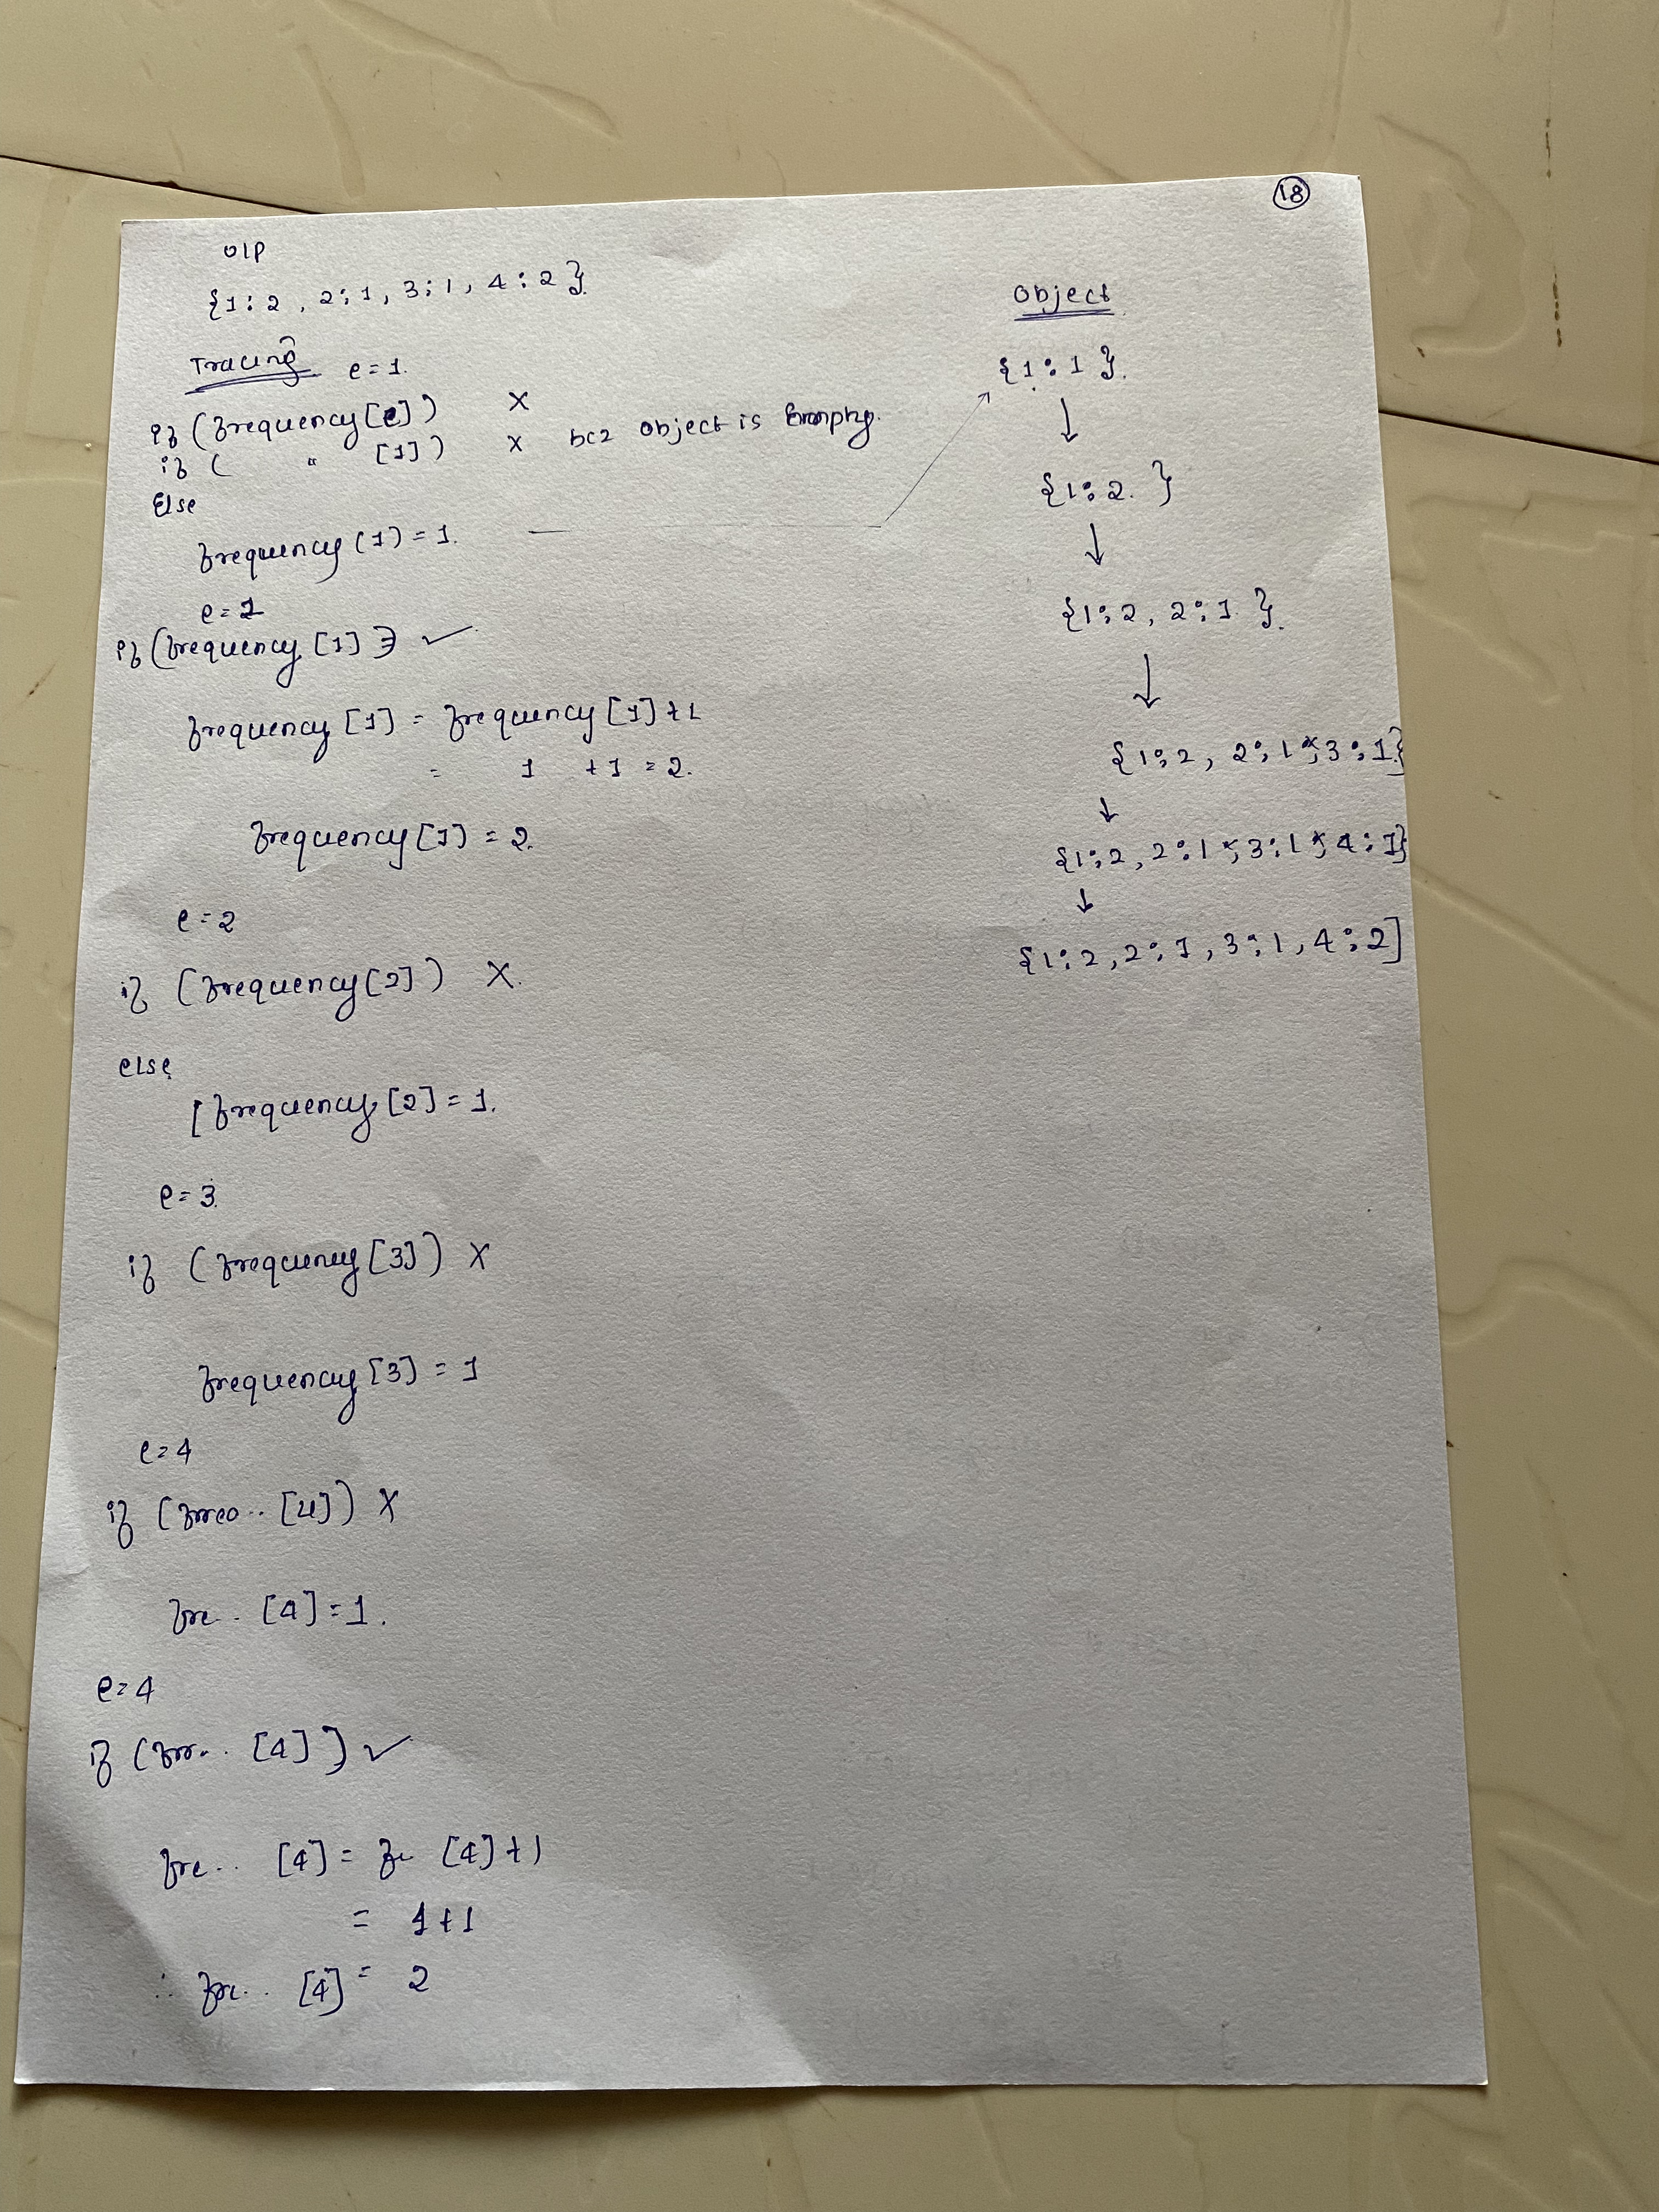 18
O/P
{1:2, 2:1, 3:1, 4:2}
Tracing e=1.
if (frequency[e]) X
if ( " [1]) X bcz object is Empty.
Else
frequency(1)=1.
e=1
if (frequency[1]) ✓
frequency[1] = frequency[1]+1
= 1 +1 =2.
frequency[1] = 2.
e=2
if (frequency[2]) X.
else
[frequency[2]=1.
e=3.
if (frequency[3]) X
frequency[3] = 1
e=4
if ( [4]) X
fre.. [4]=1.
e=4
if (fr... [4]) ✓
fre... [4] = fr [4]+1
= 1+1
∴ fre.. [4] = 2
Object
{1:1}.
↓
{1:2.}
↓
{1:2, 2:1.}.
↓
{1:2, 2:1, 3:1.}
↓
{1:2, 2:1, 3:1, 4:1}
↓
{1:2, 2:1, 3:1, 4:2]